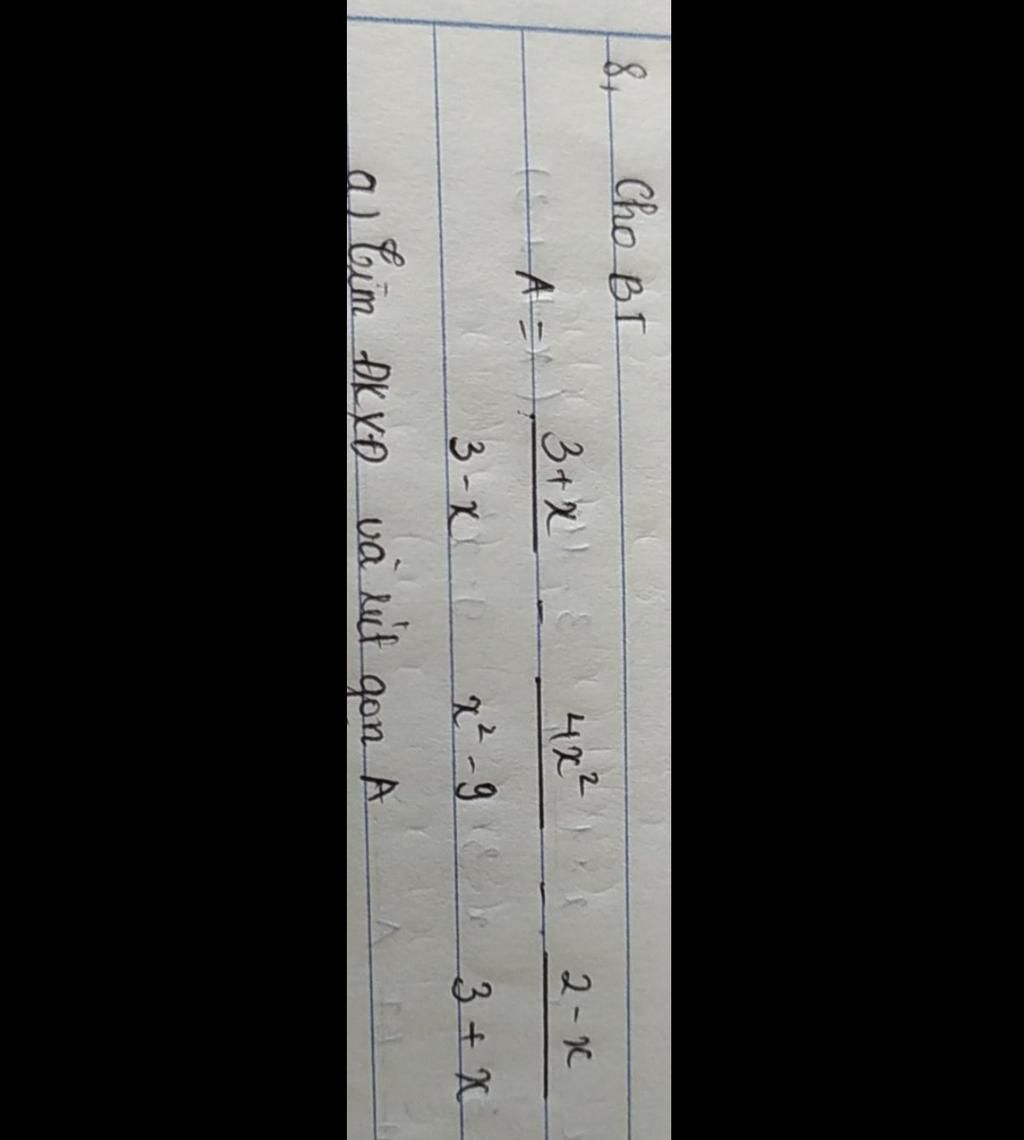 8, Cho BT
A = \frac{3+x}{3-x} - \frac{4x^2}{x^2-9} - \frac{2-x}{3+x}
a) Tìm ĐKXĐ và rút gọn A